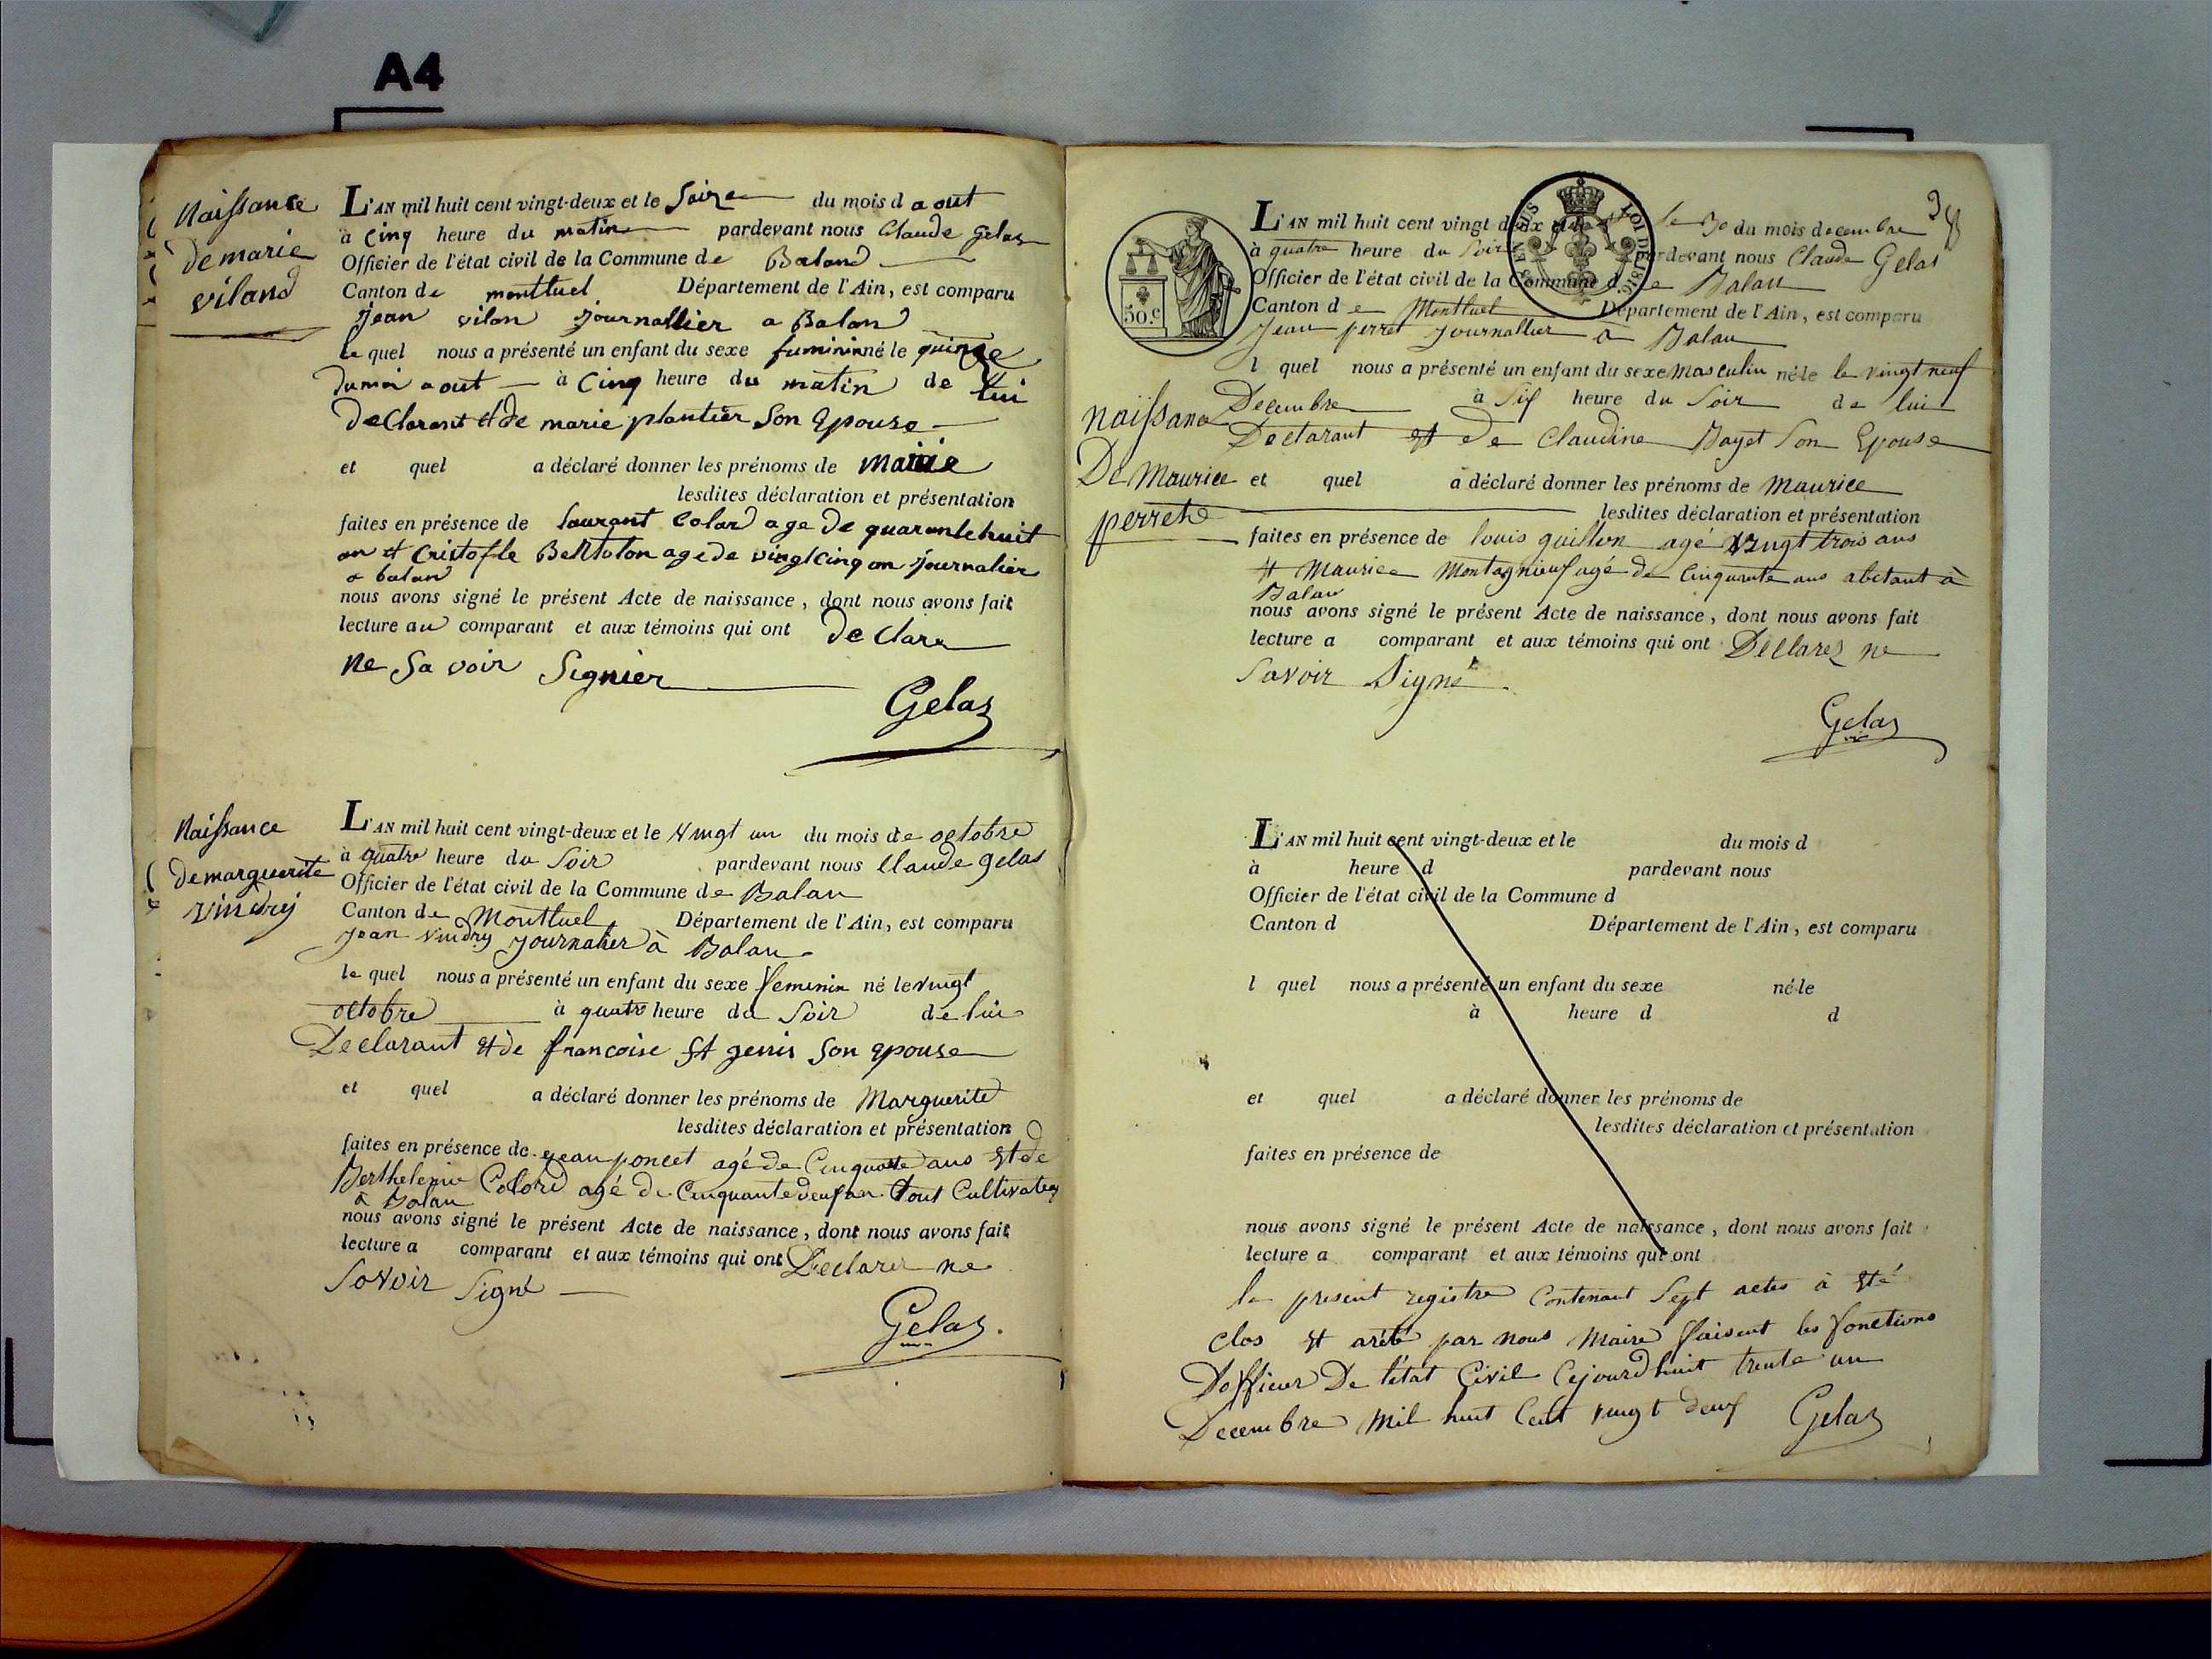 A4
Naissance
de marie
viland
L'AN mil huit cent vingt-deux et le Soize du mois d aout
à Cinq heure du matin pardevant nous Claude Gelas
Officier de l'état civil de la Commune de Baland
Canton de montluel Département de l'Ain, est comparu
jean vilon journallier a Balan
le quel nous a présenté un enfant du sexe fuminin né le quinze
du moi aout à Cinq heure du matin de lui
declarant et de marie plantier Son Epouse
et quel a déclaré donner les prénoms de marie
lesdites déclaration et présentation
faites en présence de Laurant Colard age de quarantehuit
an et Cristofle Bertolon age de vingtcinq an journalier
a balan
nous avons signé le présent Acte de naissance, dont nous avons fait
lecture au comparant et aux témoins qui ont de clare
ne Sa voir Signier
Gelas
Naissance
de marguerite
vindry
L'AN mil huit cent vingt-deux et le vingt un du mois de octobre
à quatre heure du Soir pardevant nous Claude gelas
Officier de l'état civil de la Commune de Balan
Canton de Montluel Département de l'Ain, est comparu
jean vindry journalier à Balan
le quel nous a présenté un enfant du sexe feminin né le vingt
octobre à quatre heure du Soir de lui
Declarant et de francoise St genis Son epouse
et quel a déclaré donner les prénoms de Marguerite
lesdites déclaration et présentation
faites en présence de jean poncet agé de Cinquante ans et de
Berthelemie Colord agé de Cinquantedeux an tout Cultivateur
a Balan
nous avons signé le présent Acte de naissance, dont nous avons fait
lecture a comparant et aux témoins qui ont Declarer ne
Savoir Signé
Gelas
L'AN mil huit cent vingt deux et le 30 du mois decembre
à quatre heure du Soir pardevant nous Claude Gelas
Officier de l'état civil de la Commune de Balan
Canton de Montluel Département de l'Ain, est comparu
Jean perret journallier à Balan
50.c
LOI DE 1816
l quel nous a présenté un enfant du sexe masculin né le le vingt neuf
Decembre à Six heure du Soir de lui
Declarant et de Claudine Bayet Son Epouse
naissance
De Maurice
perret
et quel a déclaré donner les prénoms de maurice
lesdites déclaration et présentation
faites en présence de louis guillon agé vingt trois ans
et Maurice Montagnieux agé de Cinquante ans abitant à
Balan
nous avons signé le présent Acte de naissance, dont nous avons fait
lecture a comparant et aux témoins qui ont Declarez ne
Savoir Signé
Gelas
L'AN mil huit cent vingt-deux et le du mois d
à heure d pardevant nous
Officier de l'état civil de la Commune d
Canton d Département de l'Ain, est comparu
l quel nous a présenté un enfant du sexe né le
à heure d d
et quel a déclaré donner les prénoms de
lesdites déclaration et présentation
faites en présence de
nous avons signé le présent Acte de naissance, dont nous avons fait
lecture a comparant et aux témoins qui ont
le present registre Contenant Sept actes à eté
clos et arêté par nous Maire faisent les fonctions
Dofficier De l'état Civil Cejourdhuit trente un
Decembre Mil huit Cent vingt deux Gelas